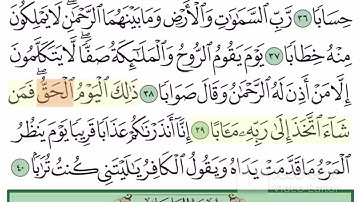 حِسَابًا ٣٦ رَّبِّ السَّمَٰوَٰتِ وَالْأَرْضِ وَمَا بَيْنَهُمَا الرَّحْمَٰنِ ۖ لَا يَمْلِكُونَ
مِنْهُ خِطَابًا ٣٧ يَوْمَ يَقُومُ الرُّوحُ وَالْمَلَٰٓئِكَةُ صَفًّا ۖ لَّا يَتَكَلَّمُونَ
إِلَّا مَنْ أَذِنَ لَهُ الرَّحْمَٰنُ وَقَالَ صَوَابًا ٣٨ ذَٰلِكَ الْيَوْمُ الْحَقُّ ۖ فَمَن
شَآءَ اتَّخَذَ إِلَىٰ رَبِّهِ مَـَٔابًا ٣٩ إِنَّآ أَنذَرْنَٰكُمْ عَذَابًا قَرِيبًا يَوْمَ يَنظُرُ
الْمَرْءُ مَا قَدَّمَتْ يَدَاهُ وَيَقُولُ الْكَافِرُ يَٰلَيْتَنِى كُنتُ تُرَٰبًۢا ٤٠